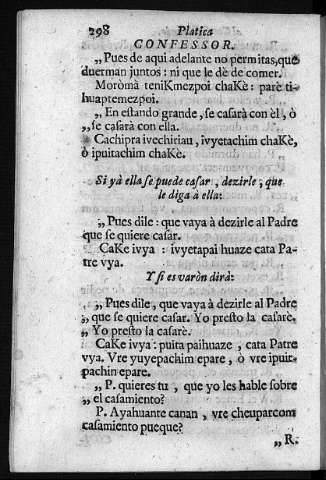 298 Platica
CONFESSOR.
„Pues de aqui adelante no permitas, que
duerman juntos: ni que le dè de comer.
Moròmà teniKmezpoi chaKè: parè ti-
huaptemezpoi.
„ En estando grande, se casarà con èl, ò
„ se casarà con ella.
Cachipra ivechiriau, ivyetachim chaKè,
ò ipuitachim chaKè.
Si yà ella se puede casar, dezirle, que
le diga à ella:
„Pues dile: que vaya à dezirle al Padre
que se quiere casar.
CaKe ivya: ivyetapai huaze cata Pa-
tre vya.
Y si es varòn dirà:
„Pues dile, que vaya à dezirle al Padre
„ que se quiere casar. Yo presto la casarè.
„ Yo presto la casarè.
CaKe ivya: puita paihuaze, cata Patre
vya. Vre yuyepachim epare, ò vre ipuit-
pachin epare.
„P. quieres tu, que yo les hable sobre
„ el casamiento?
P. Ayahuante canan, vre cheuparcom
casamiento pueque?
„R.